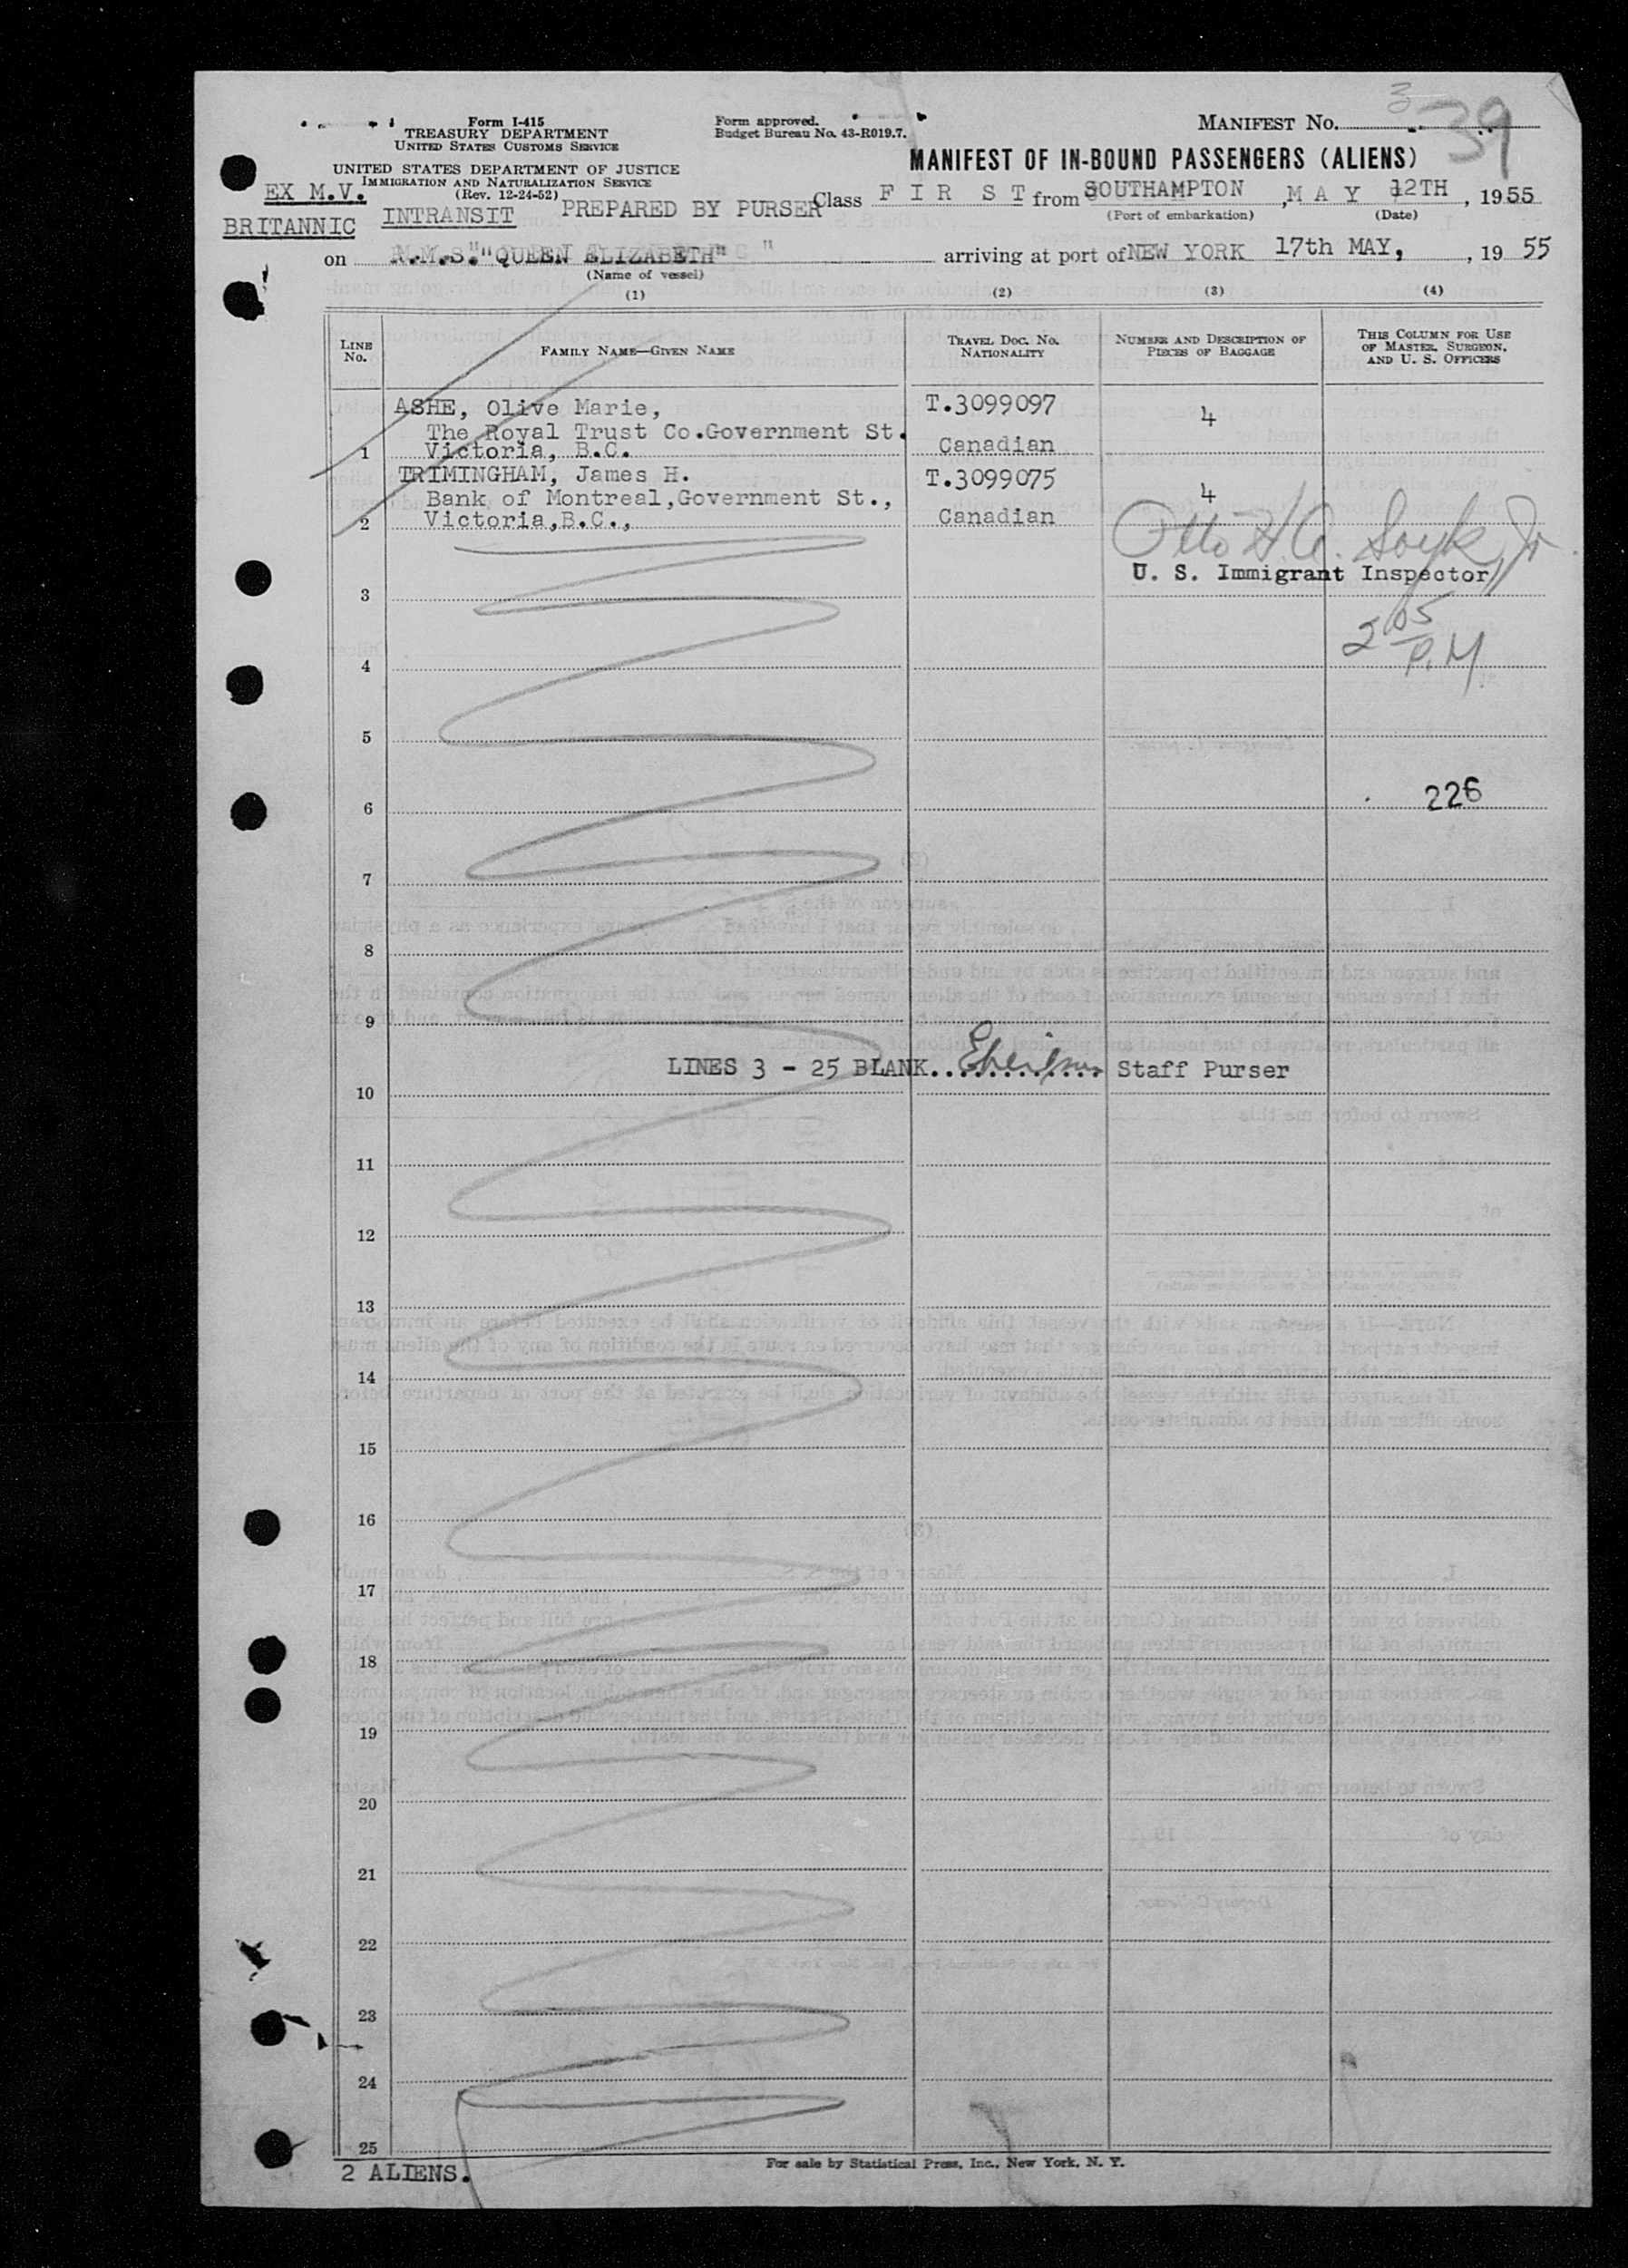 Form I-415
TREASURY DEPARTMENT
UNITED STATES CUSTOMS SERVICE
Form approved.
Budget Bureau No. 43-R019.7.
MANIFEST No. 3 - 39
UNITED STATES DEPARTMENT OF JUSTICE
IMMIGRATION AND NATURALIZATION SERVICE
(Rev. 12-24-52)
MANIFEST OF IN-BOUND PASSENGERS (ALIENS)
EX M.V.
BRITANNIC
INTRANSIT
PREPARED BY PURSER
Class F I R S T from SOUTHAMPTON, MAY 12TH, 1955
(Port of embarkation) (Date)
on R.M.S. "QUEEN ELIZABETH" arriving at port of NEW YORK 17th MAY, , 19 55
(Name of vessel)
(1) (2) (3) (4)
LINE No.
FAMILY NAME—GIVEN NAME
TRAVEL DOC. NO. NATIONALITY
NUMBER AND DESCRIPTION OF PIECES OF BAGGAGE
THIS COLUMN FOR USE OF MASTER, SURGEON, AND U. S. OFFICERS
ASHE, Olive Marie, T.3099097 4
The Royal Trust Co.Government St.
1 Victoria, B.C. Canadian
TRIMINGHAM, James H. T.3099075 4
Bank of Montreal,Government St.,
2 Victoria,B.C., Canadian
Otto H.
U. S. Immigrant Inspector
3
2 05
P.M
4
5
6 226
7
8
9
LINES 3 - 25 BLANK.............. Staff Purser
10
11
12
13
14
15
16
17
18
19
20
21
22
23
24
25
2 ALIENS.
For sale by Statistical Press, Inc., New York, N. Y.